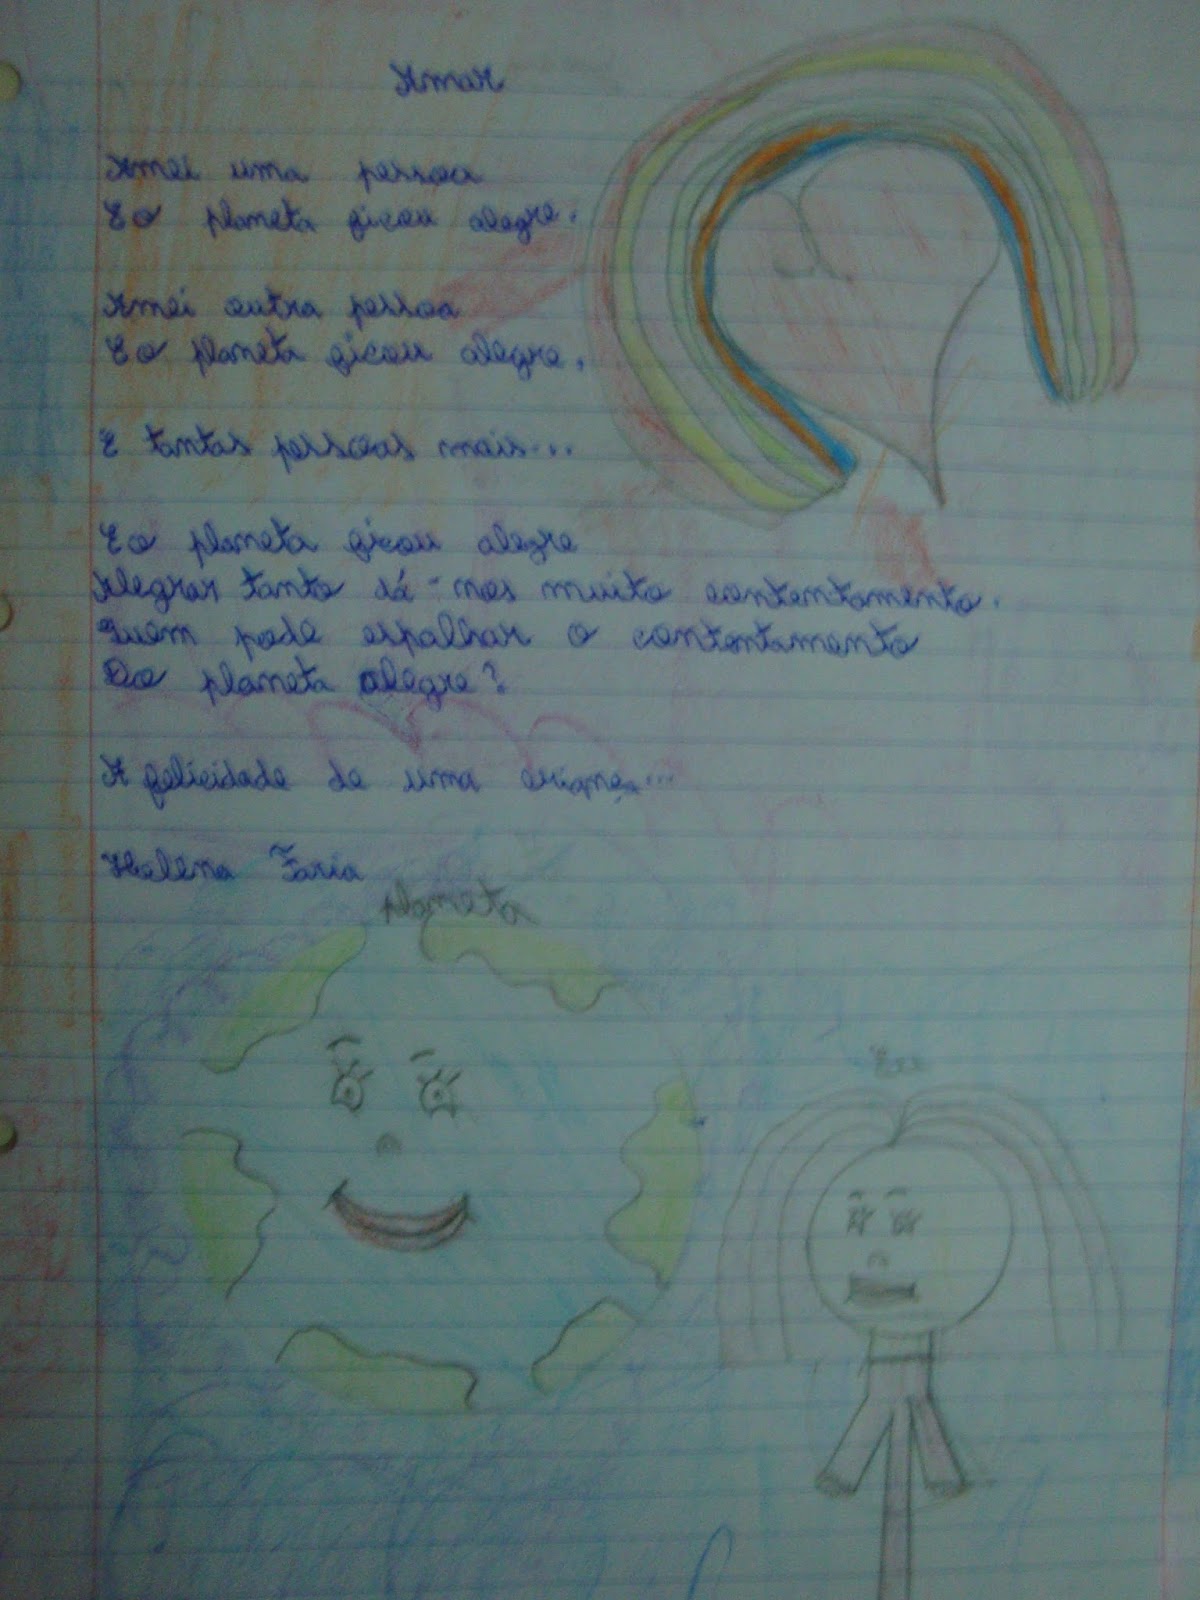 Amar
Amei uma pessoa
E o planeta ficou alegre.
Amei outra pessoa
E o planeta ficou alegre.
E tantas pessoas mais...
E o planeta ficou alegre
Alegrar tanto dá-nos muito contentamento.
Quem pode espalhar o contentamento
Do planeta alegre?
A felicidade de uma criança...
Helena Faria
planeta
Eu